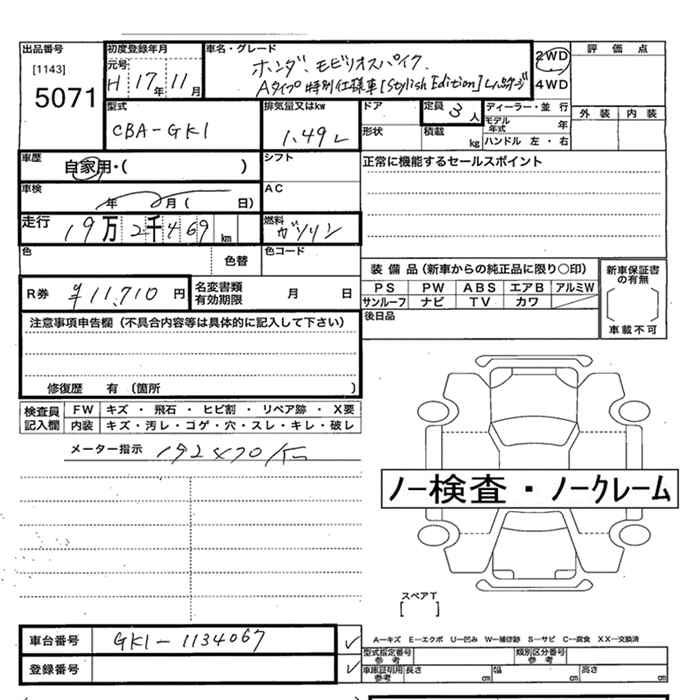 出品番号 初度登録年月 車名・グレード 評価点
[1143] 元号 ホンダ モビリオスパイク 2WD
5071 H 17年 11月 Aタイプ 特別仕様車[Stylish Edition] 4WD
型式 排気量又はkw ドア 定員 3人 ディーラー・並行 外装 内装
CBA-GK1 1.49L 形状 積載 kg モデル年式 年
ハンドル 左・右
車歴 自家用・( ) シフト 正常に機能するセールスポイント
車検 年 月( 日) AC
走行 19万2千469km 燃料 ガソリン
色 色替 色コード
装備品(新車からの純正品に限り○印) 新車保証書の有無
R券 ¥11,710円 名変書類有効期限 月 日 PS PW ABS エアB アルミW
サンルーフ ナビ TV カワ 車載不可
注意事項申告欄(不具合内容等は具体的に記入して下さい) 後日品
修復歴 有(箇所 )
検査員記入欄 FW キズ・飛石・ヒビ割・リペア跡・X要
内装 キズ・汚レ・コゲ・穴・スレ・キレ・破レ
メーター指示 192470Km
ノー検査・ノークレーム
スペアT
[ ]
車台番号 GK1-1134067
A−キズ E−エクボ U−凹み W−補修跡 S−サビ C−腐食 XX−交換済
登録番号 型式指定番号参考 類別区分番号参考
車庫証明用参考 長さ cm 幅 cm 高さ cm